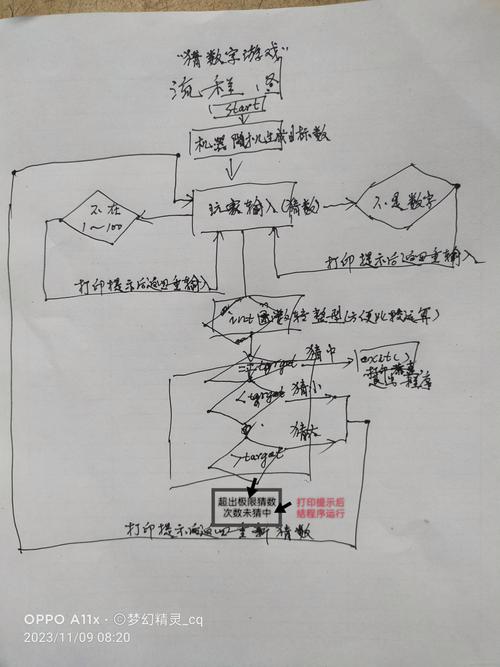 "猜数字游戏"
流程图
start
机器随机生成目标数
玩家输入(猜数)
不在
1~100
不是数字
打印提示后返回重输入
打印提示后返回重输入
int函数转整型(方便比较运算)
==target
猜中
exit()
打印恭喜
退出程序
<target
猜小
猜大
>target
超出极限猜数
次数未猜中
打印提示后
结程序运行
打印提示后返回重新猜数
OPPO A11x · ©梦幻精灵_cq
2023/11/09 08:20